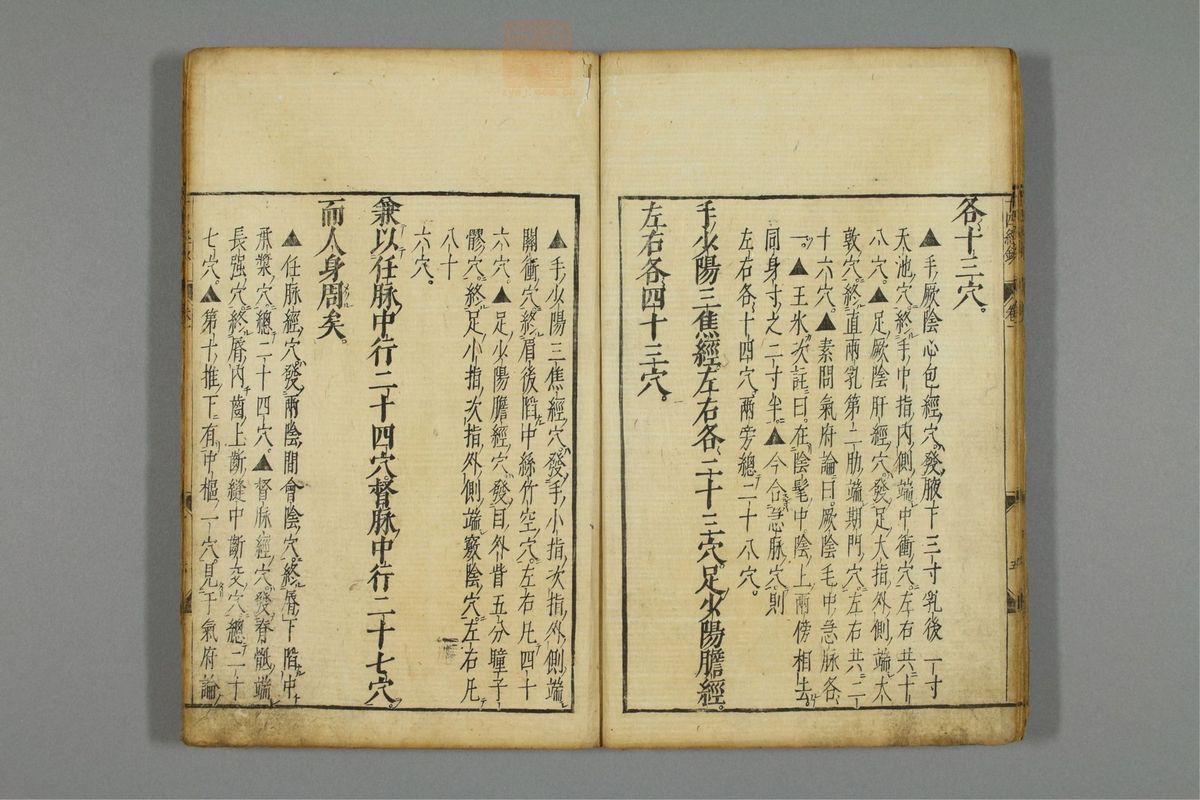 各十三穴。
▲手厥陰心包經穴發腋下三寸乳後一寸
天池穴終手中指內側端中衝穴左右共十
八穴。▲足厥陰肝經穴發足大指外側端大
敦穴終直兩乳第二肋端期門穴左右共二
十六穴。▲素問氣府論曰厥陰毛中急脉各
一。▲王氷次註曰在陰髦中陰上兩傍相去
同身寸之二寸半▲今合急脉穴則
左右各十四穴兩旁總二十八穴。
手少陽三焦經左右各二十三穴足少陽膽經
左右各四十三穴。
▲手少陽三焦經穴發手小指次指外側端
關衝穴終眉後陷中絲竹空穴左右凡四十
六穴。▲足少陽膽經穴發目外眥五分瞳子
髎穴終足小指次指外側端竅陰穴左右凡
八十
六穴。
兼以任脉中行二十四穴督脉中行二十七穴
而人身周矣。
▲任脉經穴發兩陰間會陰穴終脣下陷中
承漿穴總二十四穴。▲督脉經穴發脊骶端
長强穴終脣內齒上齗縫中齗交穴總二十
七穴。▲第十推下有中樞一穴見于氣府論